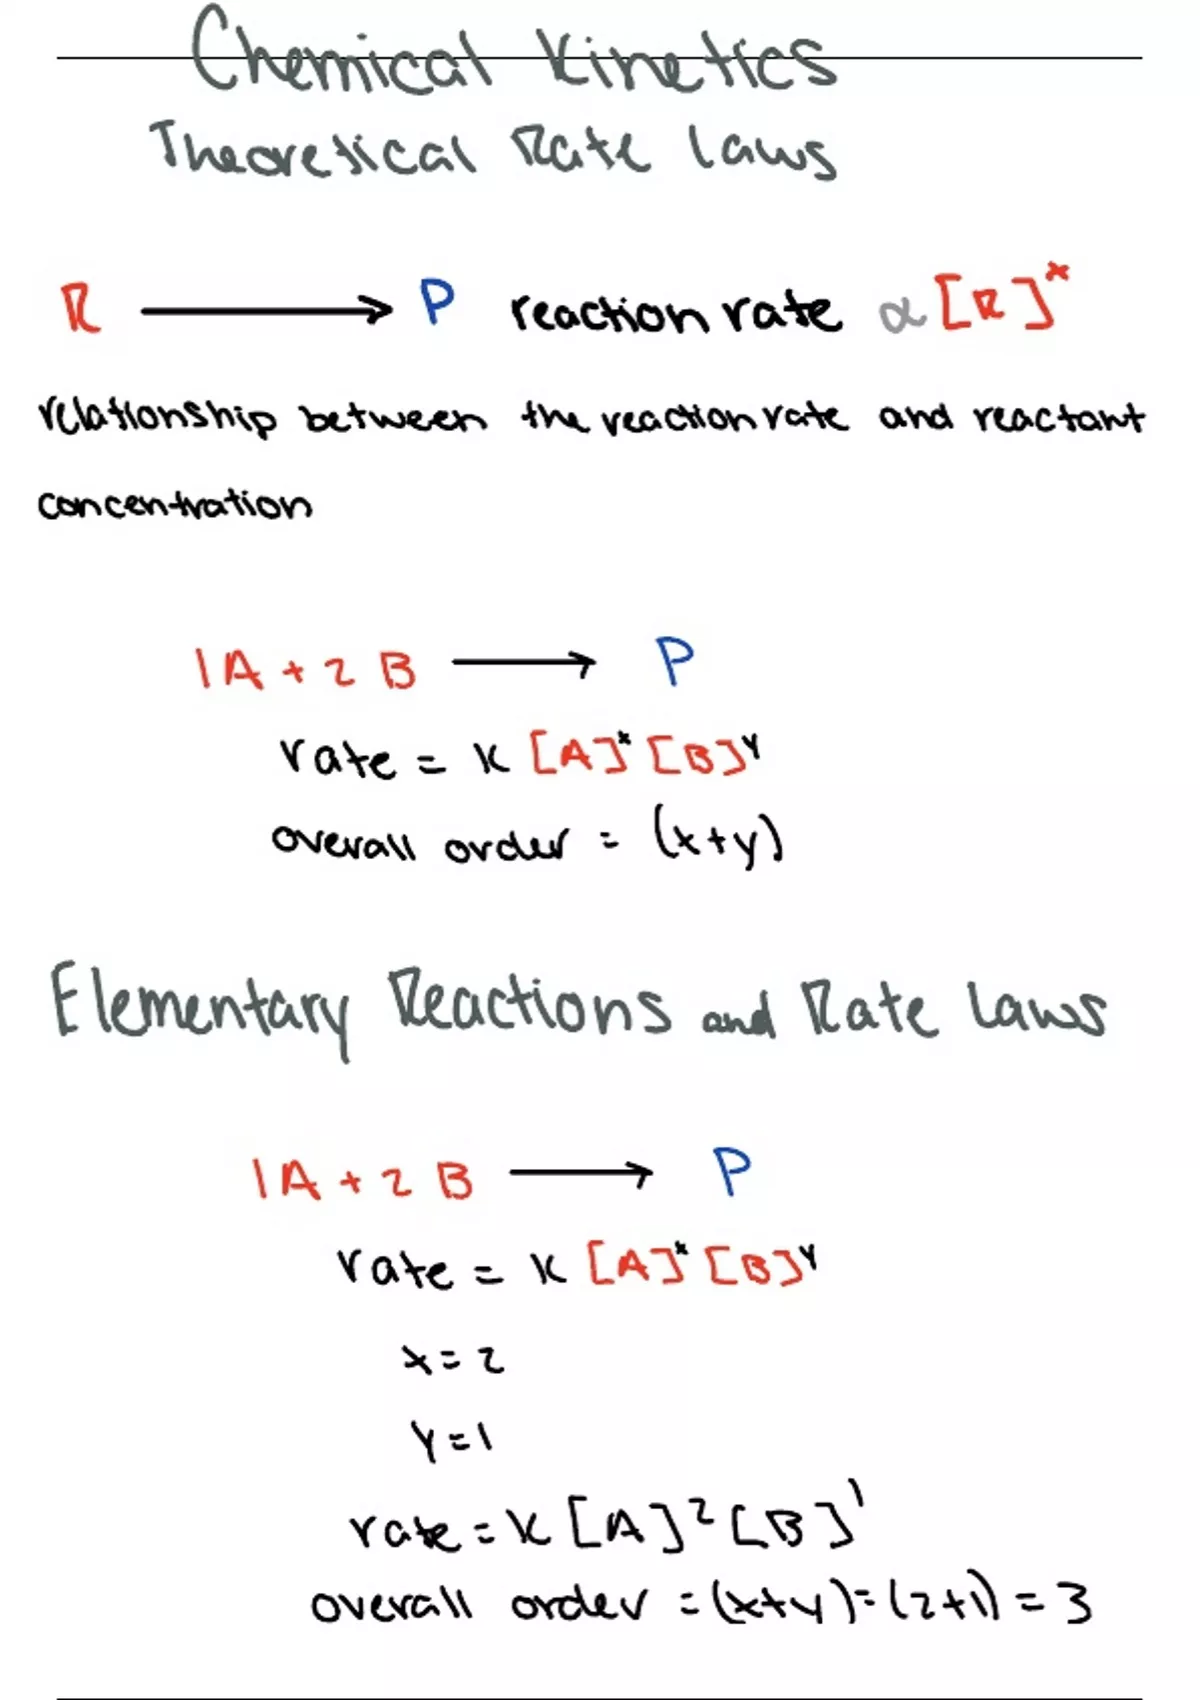 Chemical Kinetics
Theoretical Rate laws
R ⟶ P reaction rate α [R]ˣ
relationship between the reaction rate and reactant
concentration
1A + 2 B ⟶ P
rate = K [A]ˣ [B]ʸ
overall order = (x+y)
Elementary Reactions and Rate Laws
1A + 2 B ⟶ P
rate = K [A]ˣ [B]ʸ
x = 2
y = 1
rate = K [A]² [B]¹
overall order = (x+y) = (2+1) = 3